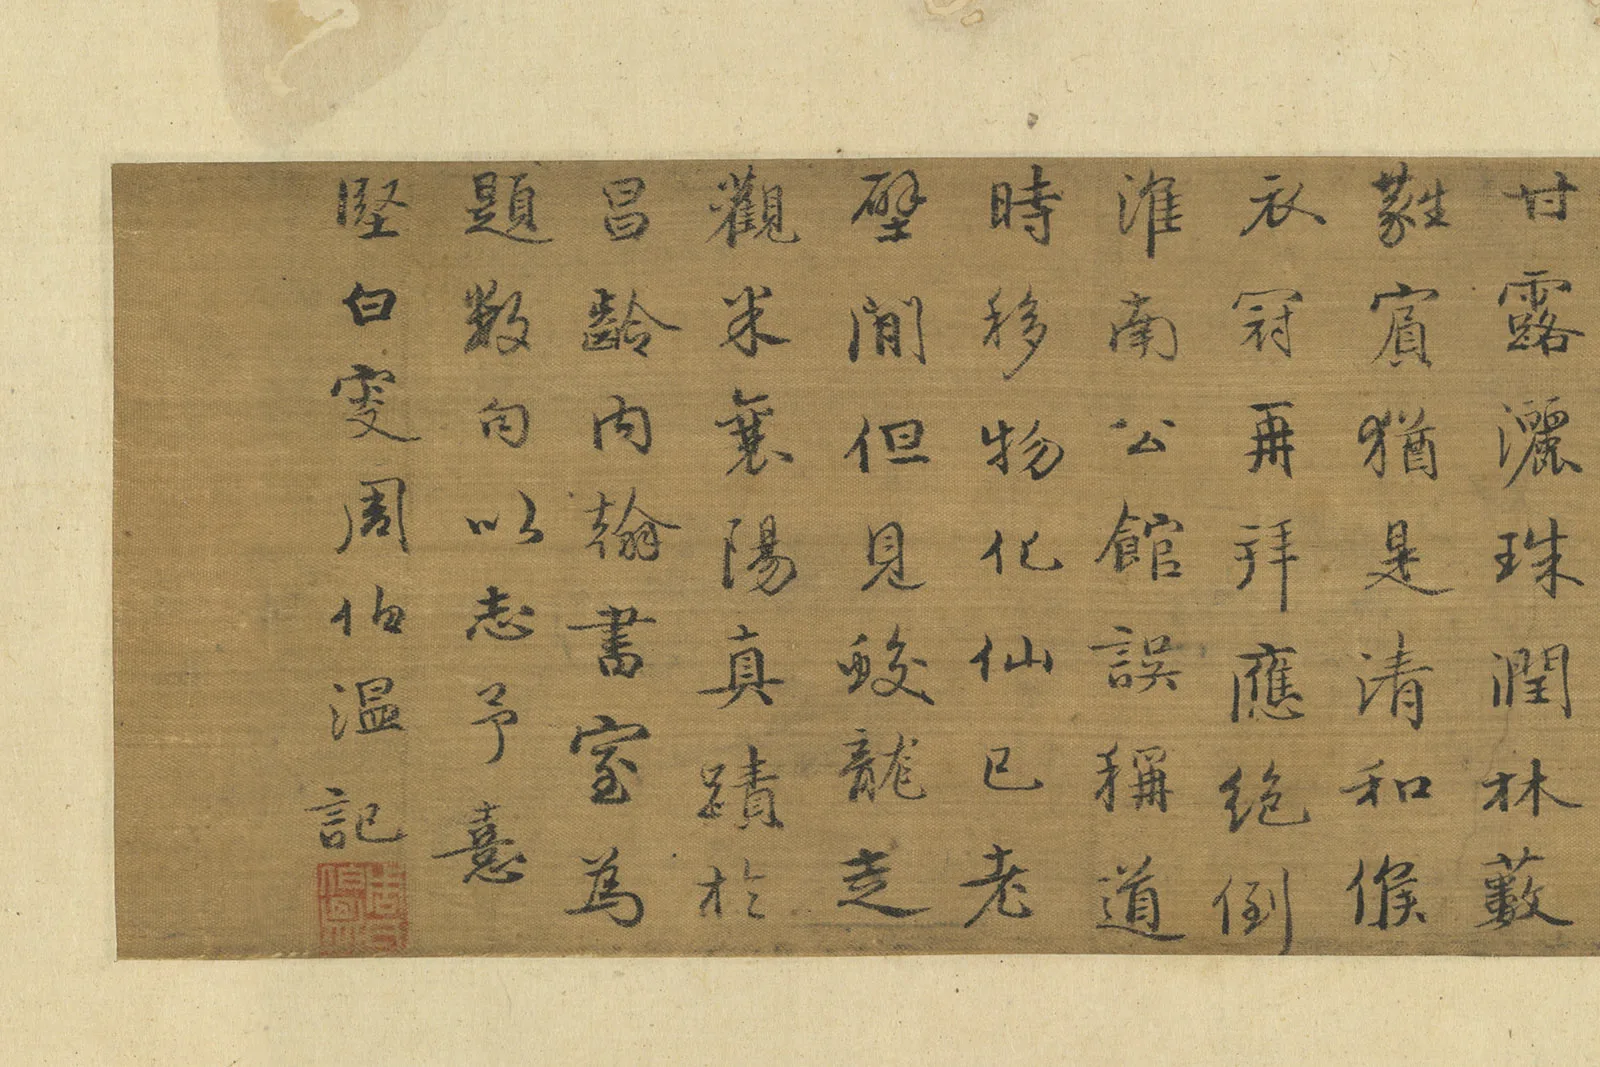 甘露灑珠潤林藪
蕤賓猶是清和候
衣冠再拜應絕倒
淮南公館誤稱道
時移物化仙已老
壁間但見蛟龍走
觀米襄陽真蹟於
昌齡内翰書室為
題數句以志予意
堅白叟周伯温記